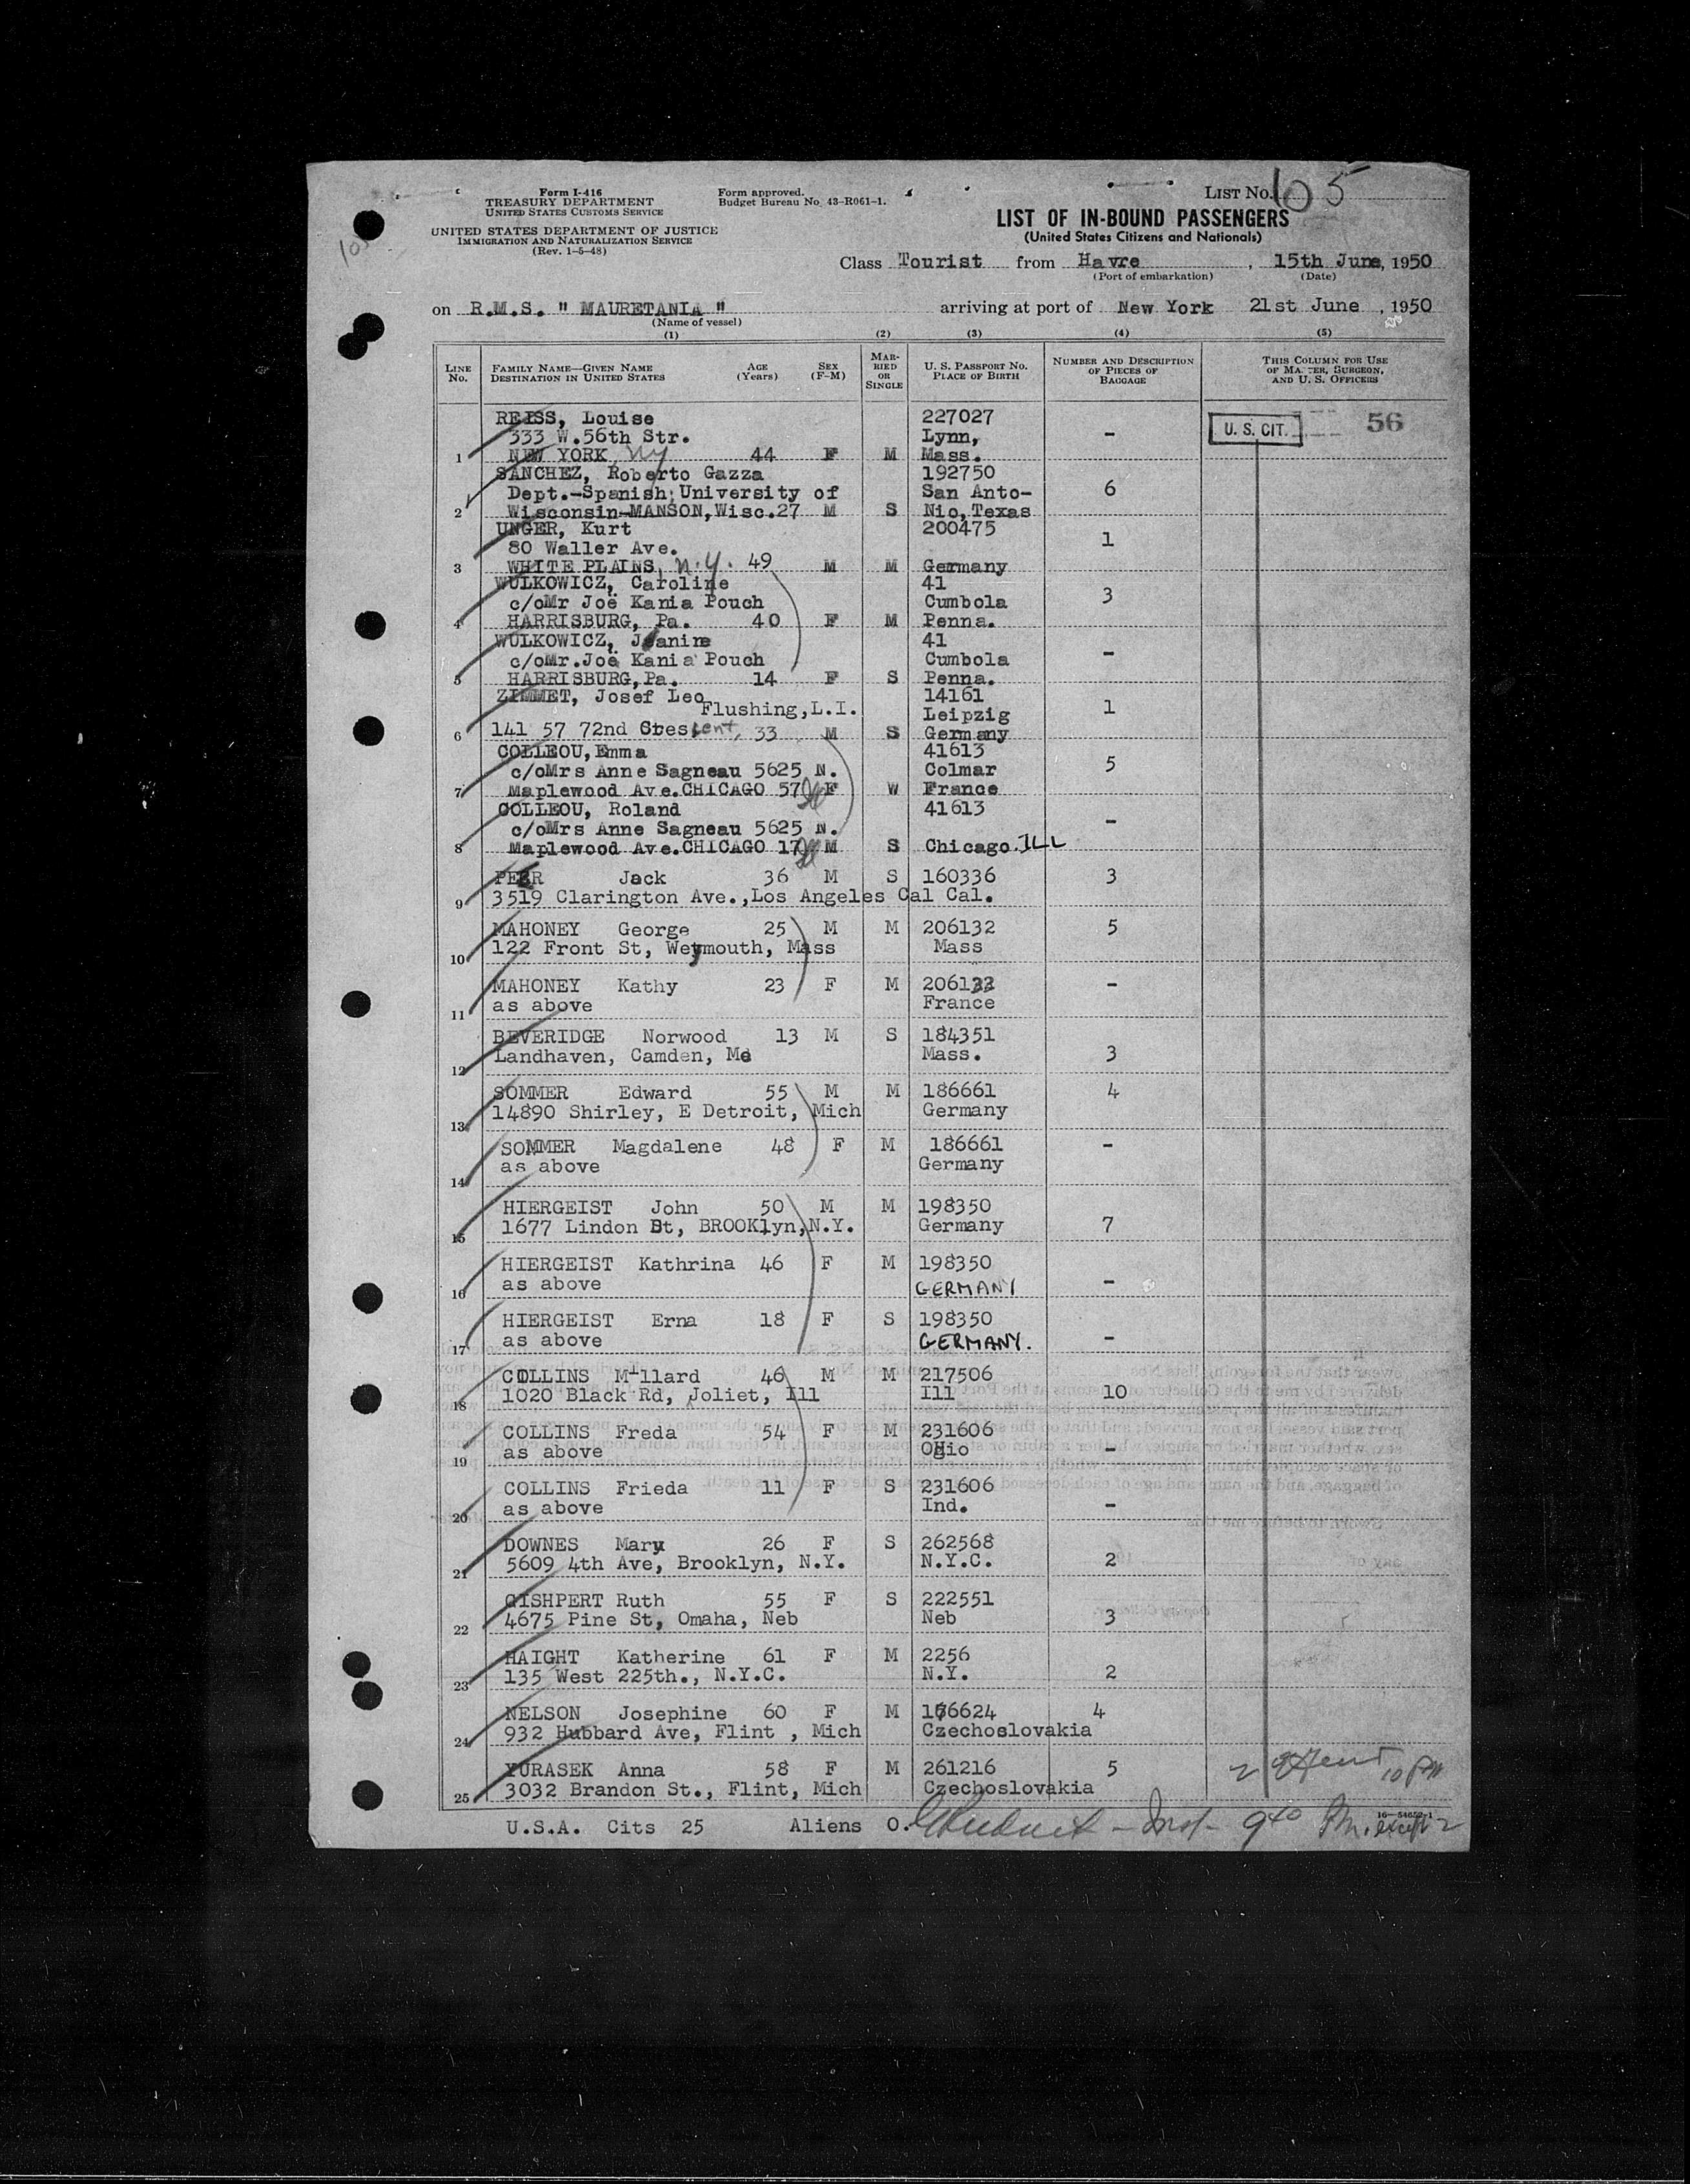 Form I-416
TREASURY DEPARTMENT
UNITED STATES CUSTOMS SERVICE
UNITED STATES DEPARTMENT OF JUSTICE
IMMIGRATION AND NATURALIZATION SERVICE
(Rev. 1-5-48)
Form approved.
Budget Bureau No. 43-R061-1.
LIST NO. 105
LIST OF IN-BOUND PASSENGERS
(United States Citizens and Nationals)
Class Tourist from Havre , 15th June, 1950
(Port of embarkation) (Date)
on R.M.S. " MAURETANIA " arriving at port of New York 21st June , 1950
(Name of vessel)
(1) (2) (3) (4) (5)
LINE No. FAMILY NAME—GIVEN NAME DESTINATION IN UNITED STATES AGE (Years) SEX (F-M) MARRIED OR SINGLE U. S. PASSPORT NO. PLACE OF BIRTH NUMBER AND DESCRIPTION OF PIECES OF BAGGAGE THIS COLUMN FOR USE OF MASTER, SURGEON, AND U. S. OFFICERS
REISS, Louise 227027 U. S. CIT. 56
333 W.56th Str. Lynn, -
1 NEW YORK NY 44 F M Mass.
SANCHEZ, Roberto Gazza 192750
Dept.-Spanish University of San Anto- 6
2 Wisconsin-MANSON,Wisc.27 M S Nio,Texas
UNGER, Kurt 200475
80 Waller Ave. 1
3 WHITE PLAINS, N.Y. 49 M M Germany
WULKOWICZ, Caroline 41
c/oMr Joë Kania Pouch Cumbola 3
4 HARRISBURG, Pa. 40 F M Penna.
WULKOWICZ, Jeanine 41
c/oMr.Joë Kania Pouch Cumbola -
5 HARRISBURG,Pa. 14 F S Penna.
ZIMMET, Josef Leo 14161
Flushing,L.I. Leipzig 1
6 141 57 72nd Crescent, 33 M S Germany
COLLEOU,Emma 41613
c/oMrs Anne Sagneau 5625 N. Colmar 5
7 Maplewood Ave.CHICAGO 57 F W France
COLLEOU, Roland 41613
c/oMrs Anne Sagneau 5625 N. -
8 Maplewood Ave.CHICAGO 17 M S Chicago.ILL
PEER Jack 36 M S 160336 3
9 3519 Clarington Ave.,Los Angeles Cal Cal.
MAHONEY George 25 M M 206132 5
10 122 Front St, Weymouth, Mass Mass
MAHONEY Kathy 23 F M 206132 -
11 as above France
BEVERIDGE Norwood 13 M S 184351
12 Landhaven, Camden, Me Mass. 3
SOMMER Edward 55 M M 186661 4
13 14890 Shirley, E Detroit, Mich Germany
SOMMER Magdalene 48 F M 186661 -
14 as above Germany
HIERGEIST John 50 M M 198350
15 1677 Lindon St, BROOKlyn,N.Y. Germany 7
HIERGEIST Kathrina 46 F M 198350
16 as above GERMANY -
HIERGEIST Erna 18 F S 198350
17 as above GERMANY. -
COLLINS Millard 46 M M 217506
18 1020 Black Rd, Joliet, Ill Ill 10
COLLINS Freda 54 F M 231606
19 as above OHio -
COLLINS Frieda 11 F S 231606
20 as above Ind. -
DOWNES Mary 26 F S 262568
21 5609 4th Ave, Brooklyn, N.Y. N.Y.C. 2
GISHPERT Ruth 55 F S 222551
22 4675 Pine St, Omaha, Neb Neb 3
HAIGHT Katherine 61 F M 2256
23 135 West 225th., N.Y.C. N.Y. 2
NELSON Josephine 60 F M 176624 4
24 932 Hubbard Ave, Flint , Mich Czechoslovakia
YURASEK Anna 58 F M 261216 5
25 3032 Brandon St., Flint, Mich Czechoslovakia
U.S.A. Cits 25 Aliens 0.